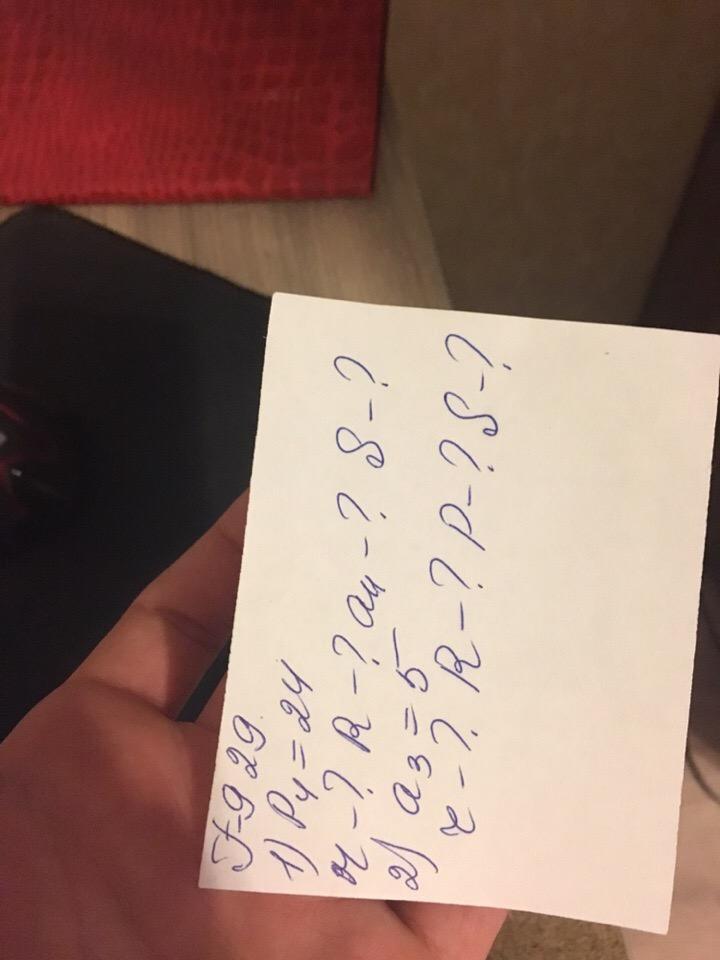 F-9 29.
1) P4 = 24
r - ? R - ? a4 - ? S - ?
2) a3 = 5
r - ? R - ? P - ? S - ?